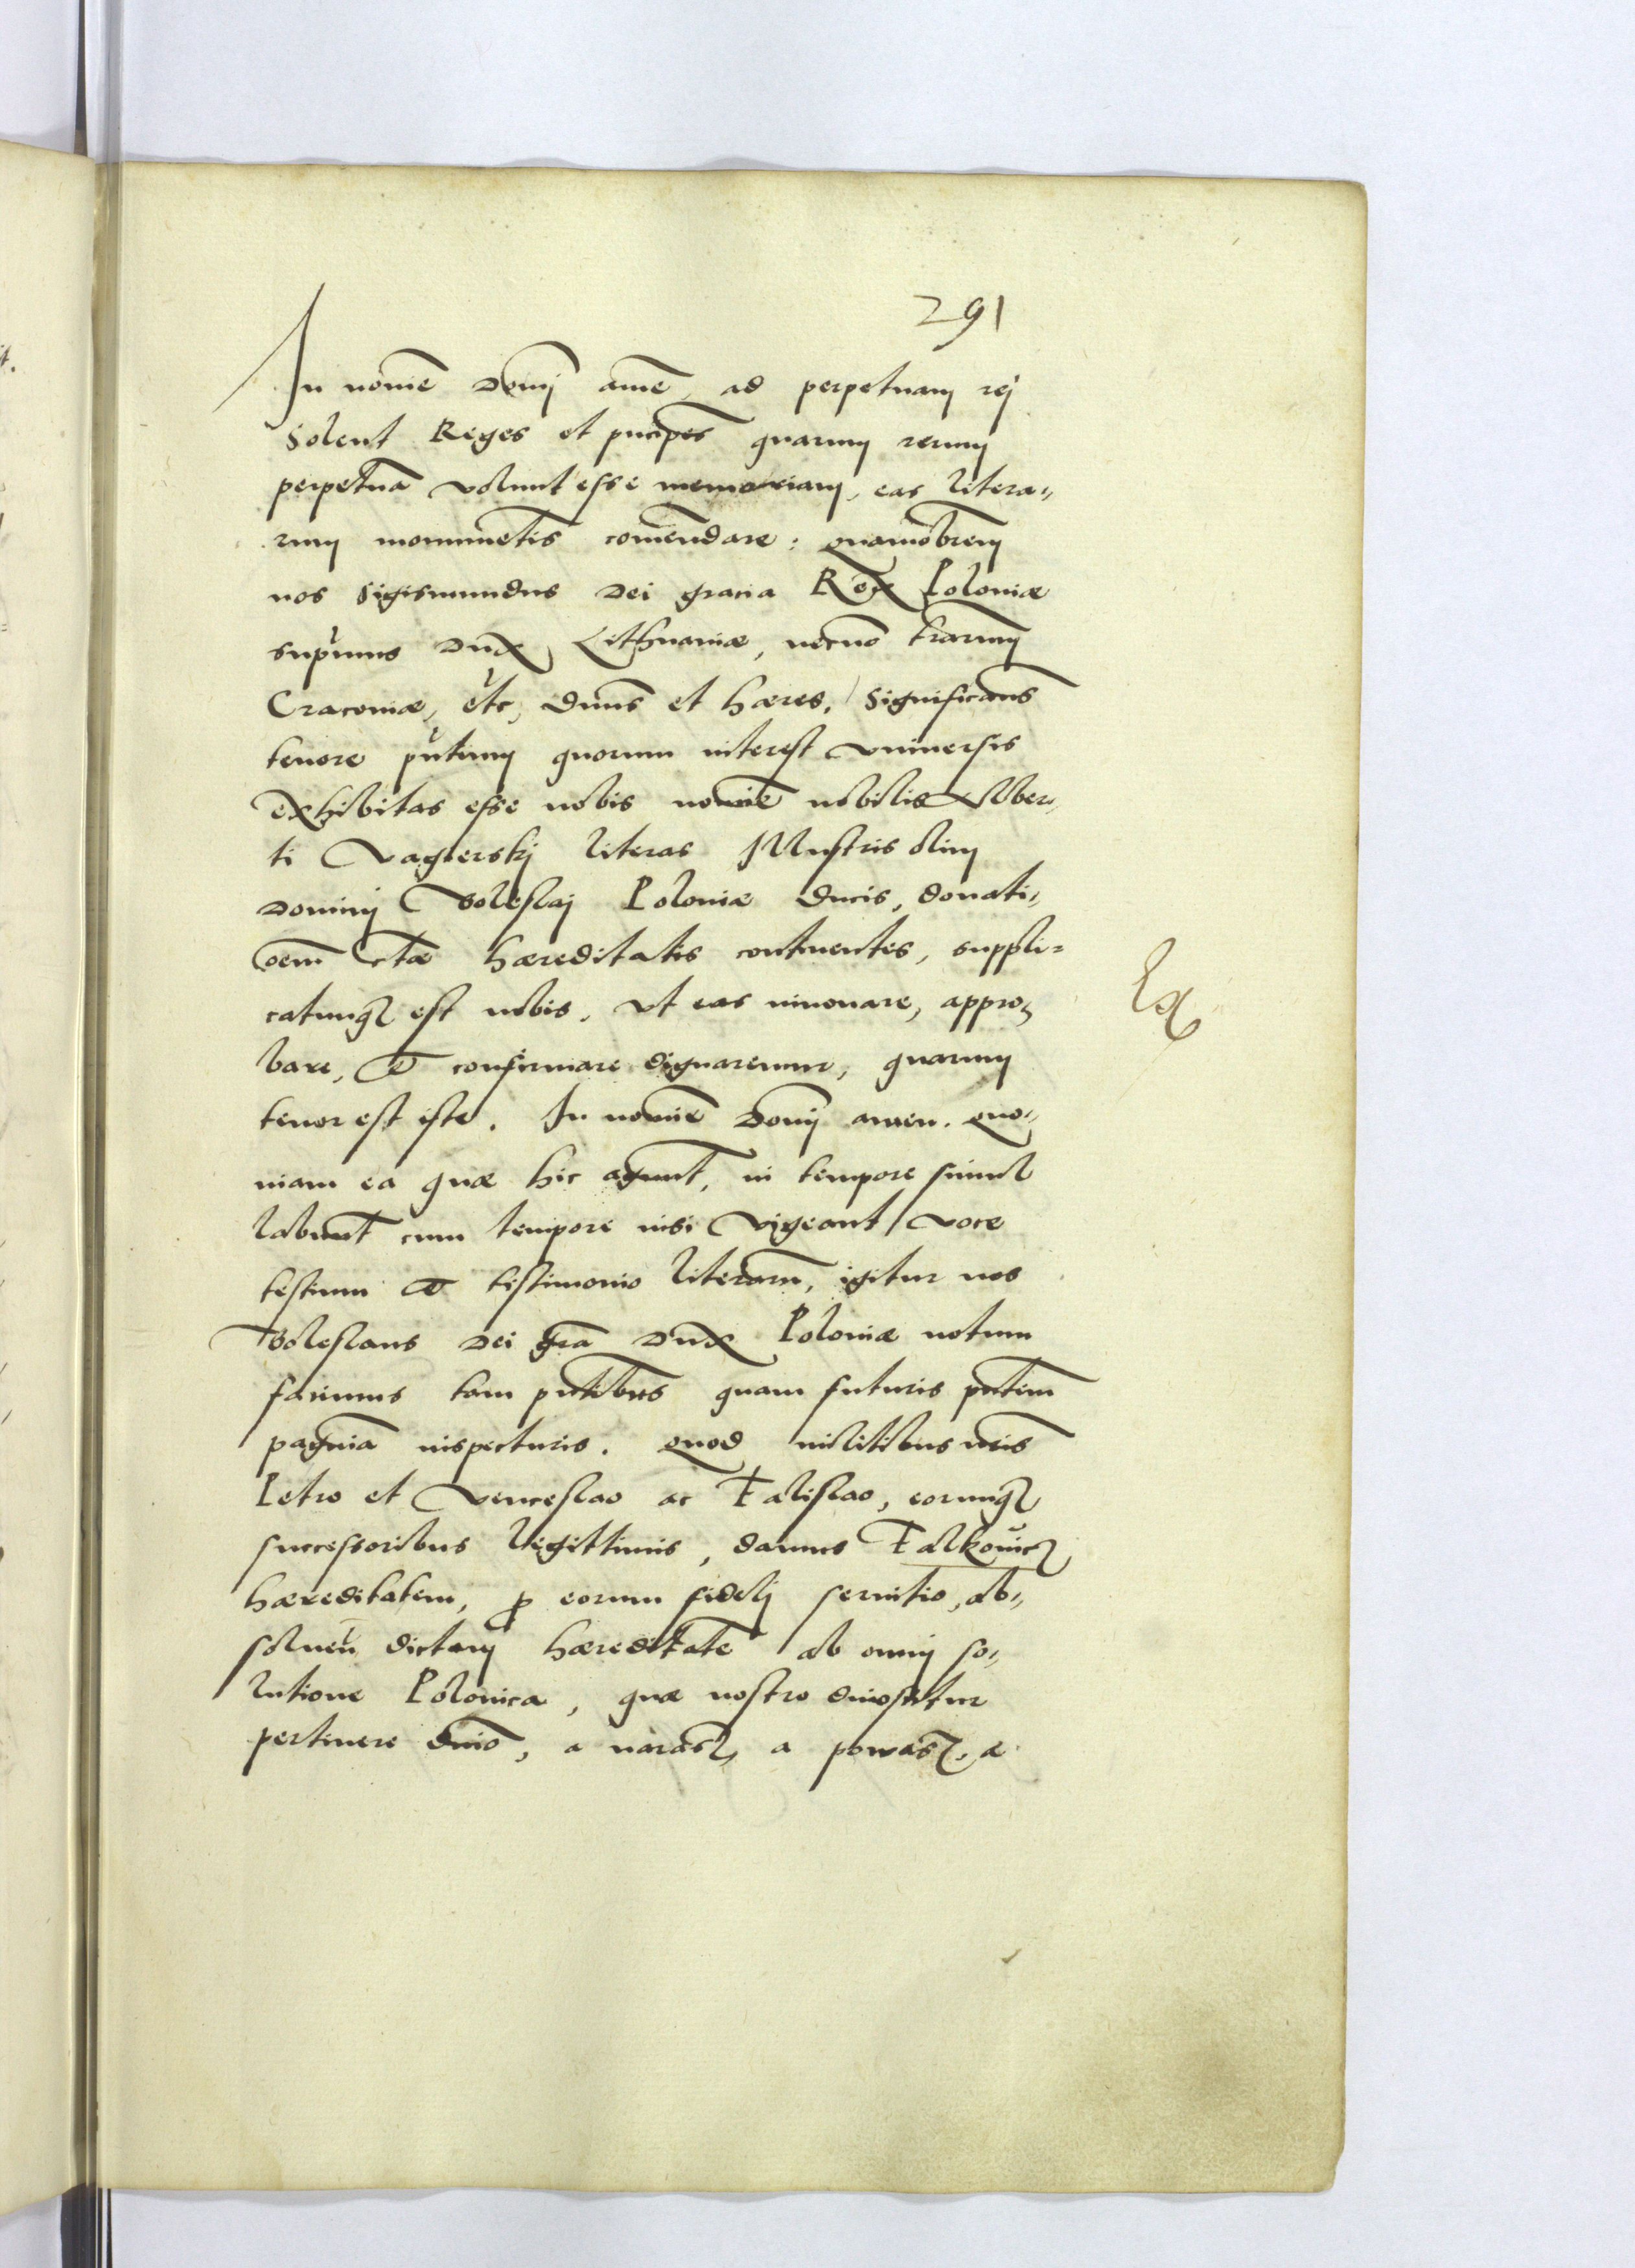 291
In nomīe Domj amē, ad perpetuam rej
Solent Reges et pncipes quarum rerum
perpetuā volunt esse memoriam, eas litera„
rum monumetis comendare: quamobrem
nos Sigismundus Dei gracia Rex Poloniæ
supmus Dux Lithuaniæ, necno trarum
Cracouiæ, etc, dnus et hæres, Significams
tenore pntium quorum interest vniuersis
exhibitas esse nobis nomīe nobilis Alber„
ti Vagierskj literas Illustris olim
Dominj Boleslaj Poloniæ ducis, donati„
oem ctæ hæreditatis continentes, suppli=
catumq est nobis, vt eas innouare, appro„
bare, et confirmare dignaremur, quarum
tenor est iste. In nomīe Domj amen. quo„
niam ea quæ hic agunt, in tempore simul
labunt cum tempore nisi vigeant voce
testium et testimonio literarū, igitur nos
Boleslaus Dei grā Dux Poloniæ notum
facimus tam pntibus quam futuris pntem
paginā inspecturis. quod militibus nris
Petro et Venceslao ac Falislao, eorumq
successoribus legittimis, damus Falkouicz
hæreditatem, p eorum fidelj seruitio, ab„
soluen dictam hæreditatē ab omnj so„
lutione Polonica, quæ nostro dinoscitur
pertinere dnio, a naras, a powas, a